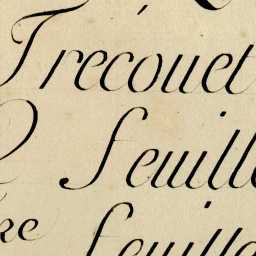 Trecouet
feuille
re feuille